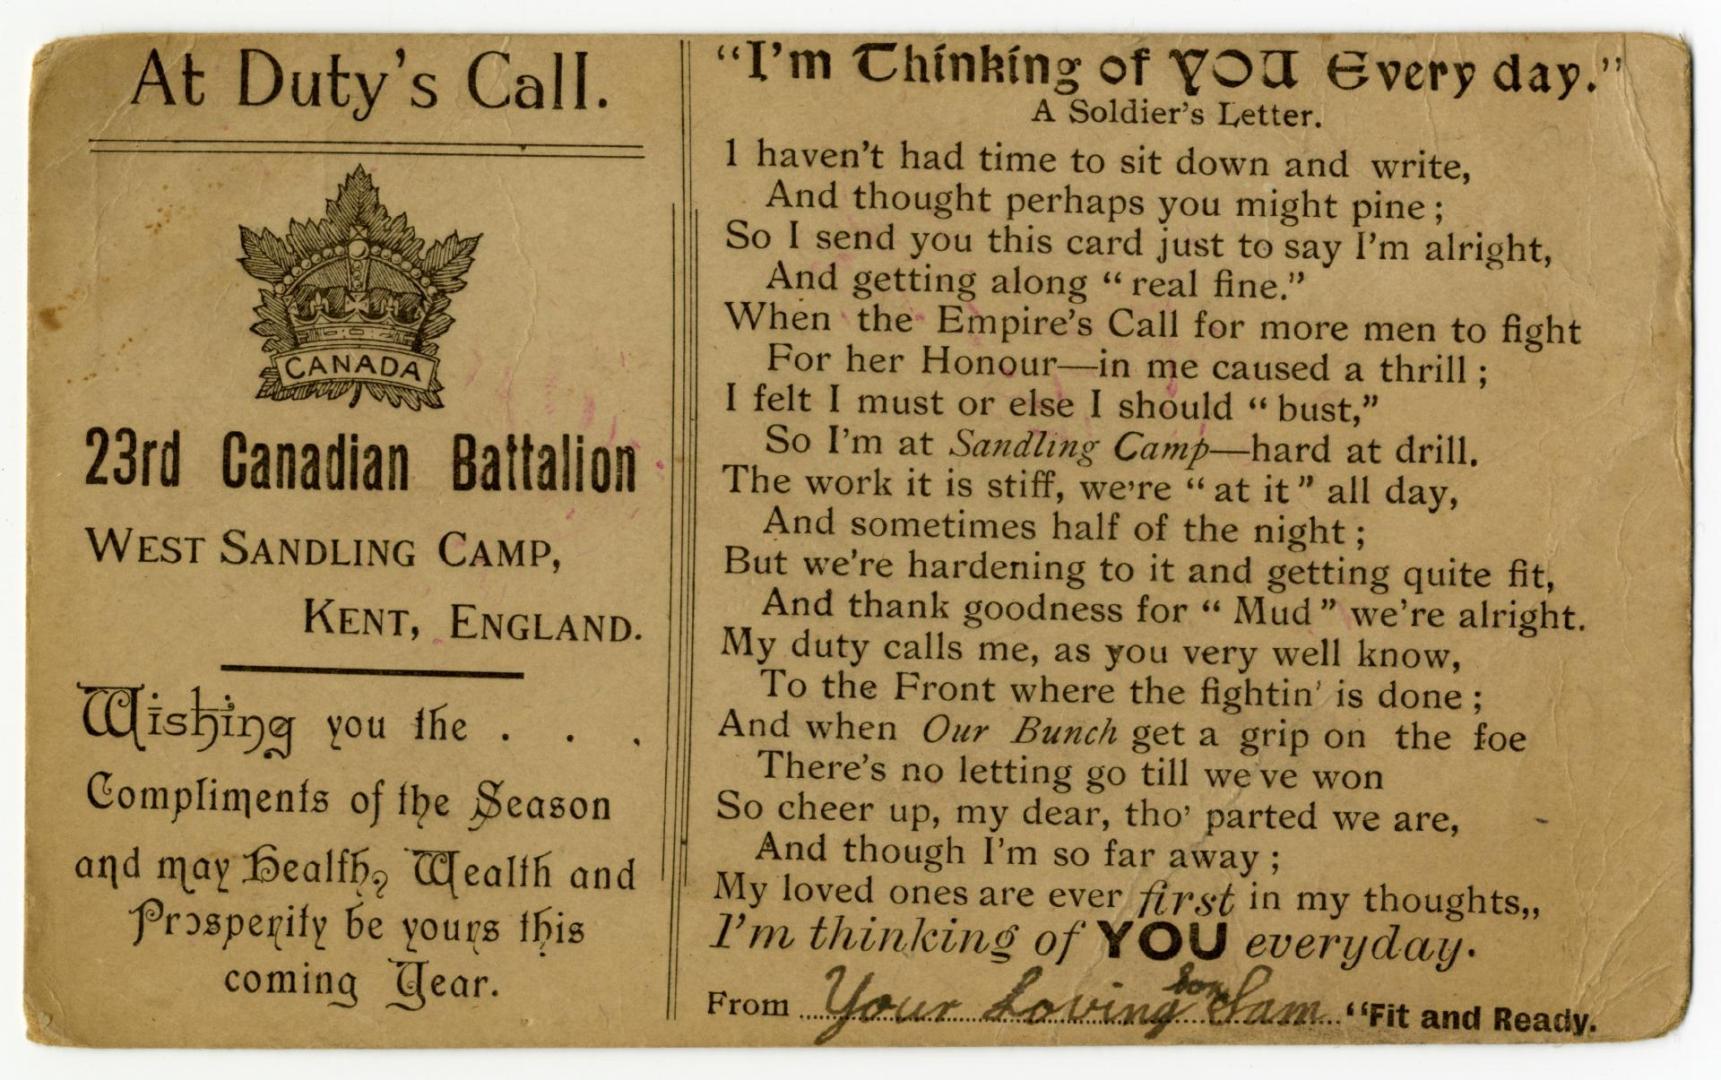 At Duty's Call.
CANADA
23rd Canadian Battalion
WEST SANDLING CAMP,
KENT, ENGLAND.
Wishing you the . . .
Compliments of the Season
and may Health, Wealth and
Prosperity be yours this
coming Year.
"I'm Thinking of YOU Every day."
A Soldier's Letter.
I haven't had time to sit down and write,
And thought perhaps you might pine;
So I send you this card just to say I'm alright,
And getting along "real fine."
When the Empire's Call for more men to fight
For her Honour—in me caused a thrill;
I felt I must or else I should "bust,"
So I'm at Sandling Camp—hard at drill.
The work it is stiff, we're "at it" all day,
And sometimes half of the night;
But we're hardening to it and getting quite fit,
And thank goodness for "Mud" we're alright.
My duty calls me, as you very well know,
To the Front where the fightin' is done;
And when Our Bunch get a grip on the foe
There's no letting go till we've won
So cheer up, my dear, tho' parted we are,
And though I'm so far away;
My loved ones are ever first in my thoughts,,
I'm thinking of YOU everyday.
From Your Loving son Sam "Fit and Ready.